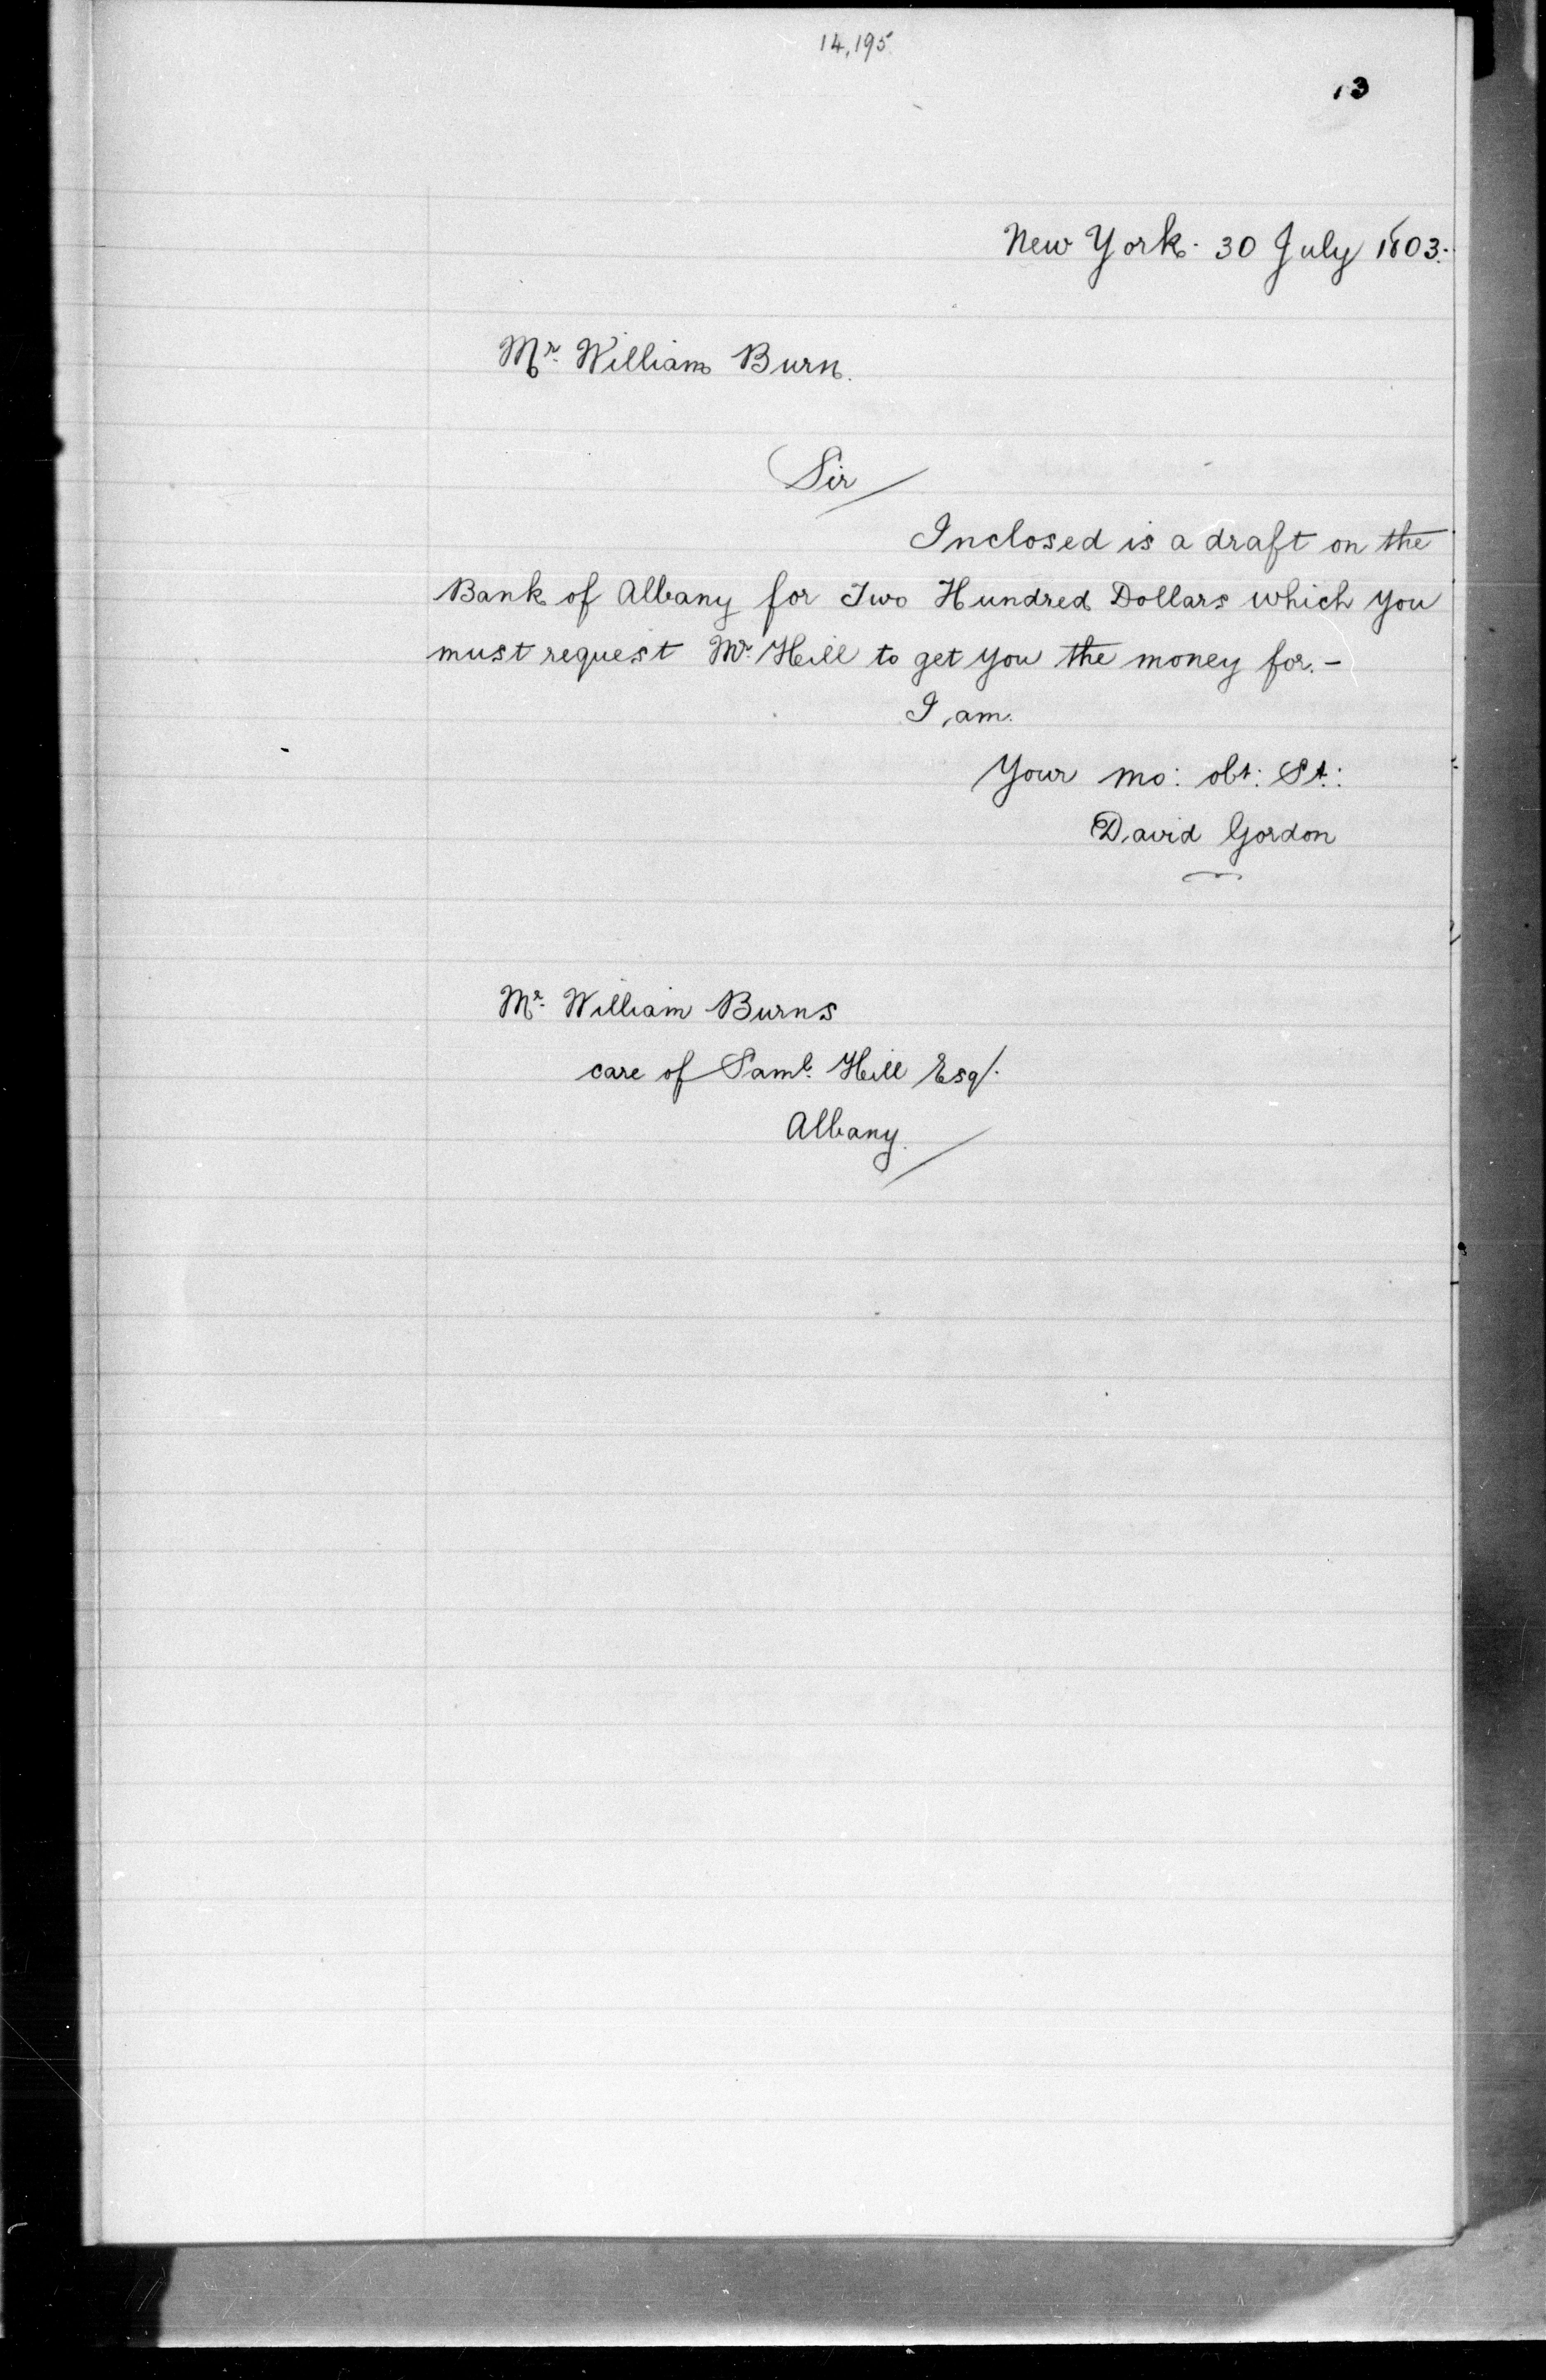 14,195
13
New York. 30 July 1803.
Mr. William Burn.
Sir
Inclosed is a draft on the
Bank of Albany for Two Hundred Dollars which you
must request Mr. Hill to get you the money for. –
I am.
Your mo: obt: St:
David Gordon
Mr. William Burns
care of Saml. Hill Esq/.
Albany.